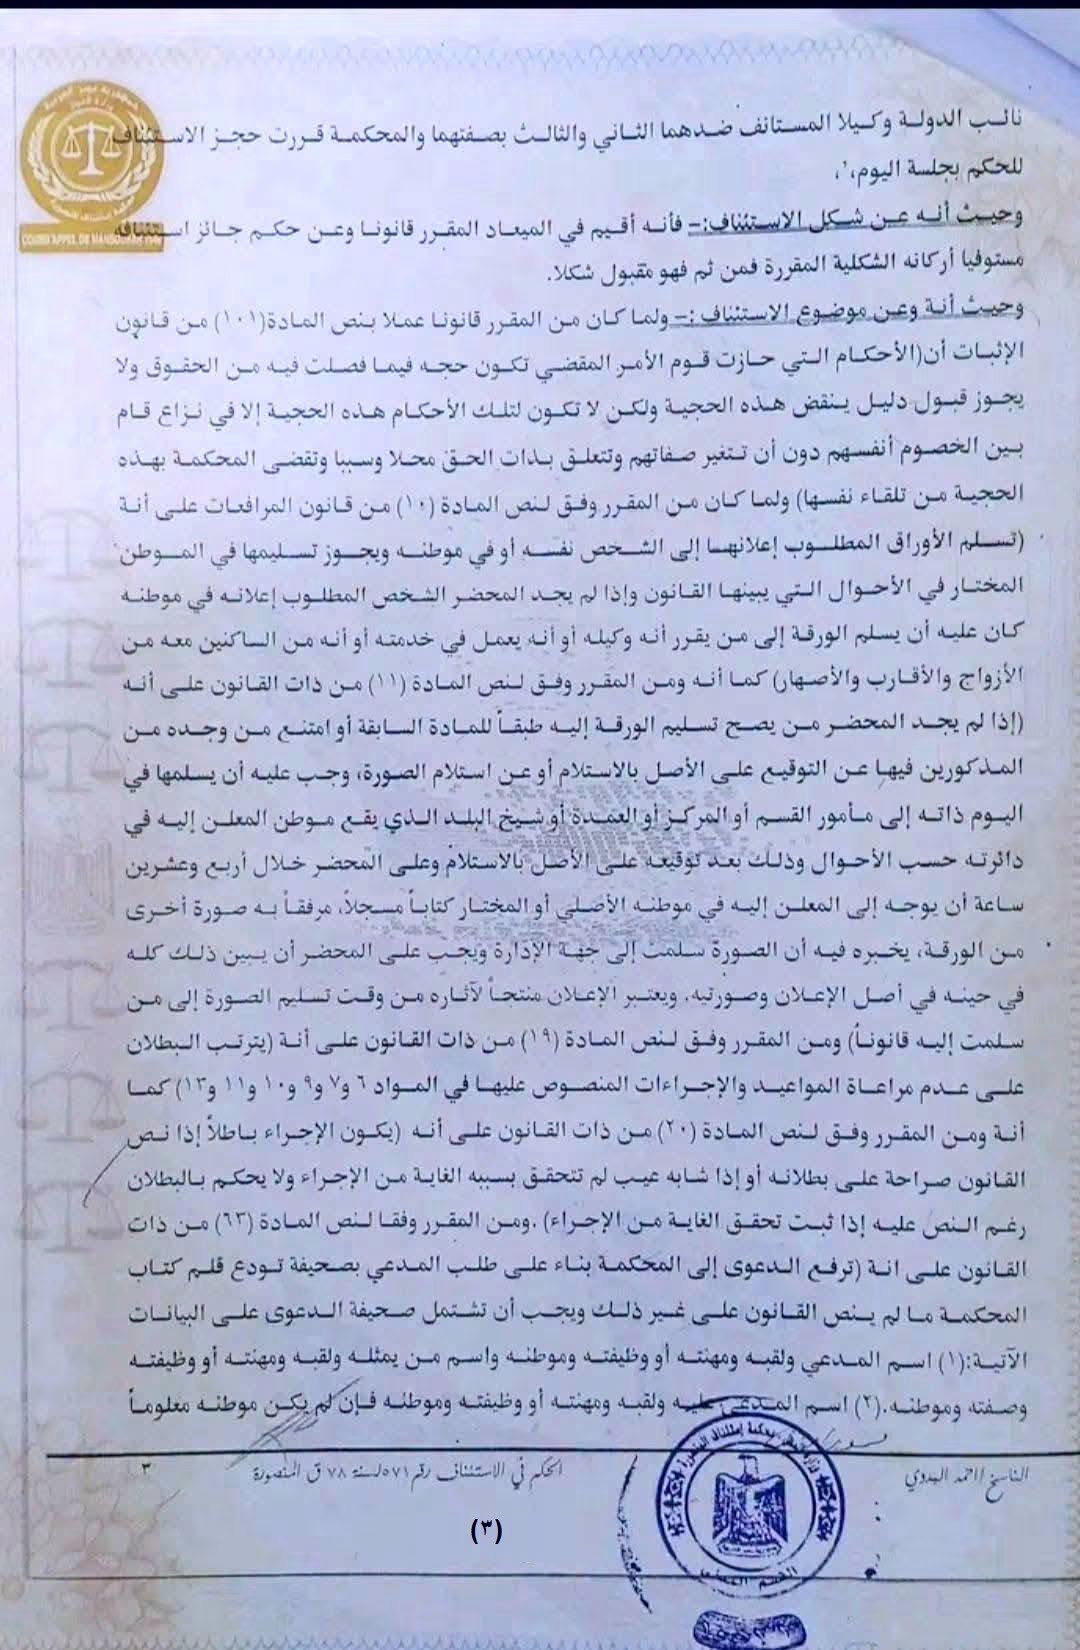 نائب الدولة وكيلا المستانف ضدهما الثاني والثالث بصفتهما والمحكمة قررت حجز الاستئناف
للحكم بجلسة اليوم،'،
COURD'APPEL DE MANSOURAH
وحيث أنه عن شكل الاستئناف:– فأنه أقيم في الميعاد المقرر قانونا وعن حكم جائز استئنافه
مستوفيا أركانه الشكلية المقررة فمن ثم فهو مقبول شكلا.
وحيث أنة وعن موضوع الاستئناف :– ولما كان من المقرر قانونا عملا بنص المادة(١٠١) من قانون
الإثبات أن(الأحكام التي حازت قوم الأمر المقضي تكون حجه فيما فصلت فيه من الحقوق ولا
يجوز قبول دليل ينقض هذه الحجية ولكن لا تكون لتلك الأحكام هذه الحجية إلا في نزاع قام
بين الخصوم أنفسهم دون أن تتغير صفاتهم وتتعلق بذات الحق محلا وسببا وتقضى المحكمة بهذه
الحجية من تلقاء نفسها) ولما كان من المقرر وفق لنص المادة (١٠) من قانون المرافعات على أنة
(تسلم الأوراق المطلوب إعلانها إلى الشخص نفسه أو في موطنه ويجوز تسليمها في الموطن
المختار في الأحوال التي يبينها القانون وإذا لم يجد المحضر الشخص المطلوب إعلانه في موطنه
كان عليه أن يسلم الورقة إلى من يقرر أنه وكيله أو أنه يعمل في خدمته أو أنه من الساكنين معه من
الأزواج والأقارب والأصهار) كما أنه ومن المقرر وفق لنص المادة (١١) من ذات القانون على أنه
(إذا لم يجد المحضر من يصح تسليم الورقة إليه طبقاً للمادة السابقة أو امتنع من وجده من
المذكورين فيها عن التوقيع على الأصل بالاستلام أو عن استلام الصورة، وجب عليه أن يسلمها في
اليوم ذاته إلى مأمور القسم أو المركز أو العمدة أو شيخ البلد الذي يقع موطن المعلن إليه في
دائرته حسب الأحوال وذلك بعد توقيعه على الأصل بالاستلام وعلى المحضر خلال أربع وعشرين
ساعة أن يوجه إلى المعلن إليه في موطنه الأصلي أو المختار كتاباً مسجلاً، مرفقاً به صورة أخرى
من الورقة، يخبره فيه أن الصورة سلمت إلى جهة الإدارة ويجب على المحضر أن يبين ذلك كله
في حينه في أصل الإعلان وصورتيه. ويعتبر الإعلان منتجاً لآثاره من وقت تسليم الصورة إلى من
سلمت إليه قانوناً) ومن المقرر وفق لنص المادة (١٩) من ذات القانون على أنة (يترتب البطلان
على عدم مراعاة المواعيد والإجراءات المنصوص عليها في المواد ٦ و٧ و٩ و١٠ و١١ و١٣) كما
أنة ومن المقرر وفق لنص المادة (٢٠) من ذات القانون على أنه (يكون الإجراء باطلاً إذا نص
القانون صراحة على بطلانه أو إذا شابه عيب لم تتحقق بسببه الغاية من الإجراء ولا يحكم بالبطلان
رغم النص عليه إذا ثبت تحقق الغاية من الإجراء) .ومن المقرر وفقا لنص المادة (٦٣) من ذات
القانون على انة (ترفع الدعوى إلى المحكمة بناء على طلب المدعي بصحيفة تودع قلم كتاب
المحكمة ما لم ينص القانون على غير ذلك ويجب أن تشتمل صحيفة الدعوى على البيانات
الآتية:(١) اسم المدعي ولقبه ومهنته أو وظيفته وموطنه واسم من يمثله ولقبه ومهنته أو وظيفته
وصفته وموطنه.(٢) اسم المدعى عليه ولقبه ومهنته أو وظيفته وموطنه فإن لم يكن موطنه معلوماً
الناسخ/احمد البدوي
الحكم في الاستئناف رقم ٥٧١ لسنة ٧٨ ق المنصورة
٣
(٣)